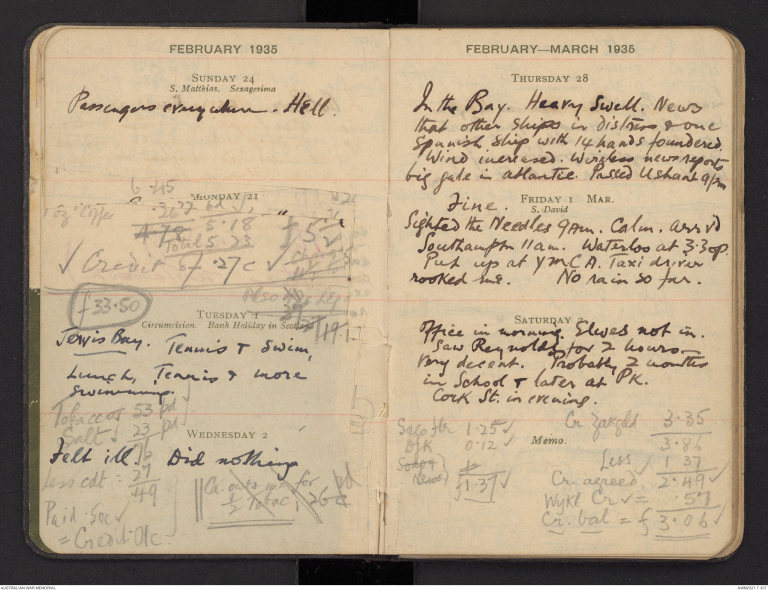 FEBRUARY 1935
SUNDAY 24
S. Matthias. Sexagesima
Passengers everywhere. Hell.
6.45
MONDAY 21
5.18
Total 5.23
£5 ✓
✓ Credit of .27c ✓
£33.50
TUESDAY 1
Circumcision. Bank Holiday in Scotland
Jervis Bay. Tennis & Swim,
Lunch, Tennis & more
swimming.
Tobacco 53 pd
Salt 23 pd
WEDNESDAY 2
Felt ill. Did nothing
Less cdt =
49
Ca. outs me for pd
½ Tobac, 26c
Paid .50c ✓
= Credit 01c
FEBRUARY—MARCH 1935
THURSDAY 28
In the Bay. Heavy Swell. News
that other ships in distress & one
Spanish ship with 14 hands foundered.
Wind increased. Wireless news reports
big gale in atlantic. Passed Ushant 9pm
FRIDAY 1 MAR.
S. David
Fine.
Sighted the Needles 9am. Calm. Arrvd
Southampton 11am. Waterloo at 3:30p.
Put up at YMCA. Taxi driver
rooked me. No rain so far.
SATURDAY
Office in morning. Elwes not in.
Saw Reynolds for 2 hours—
very decent. Probably 2 months
in School & later at PK.
Cork St. in evening.
1.25 ✓
0.12 ✓
News
£1.37 ✓
Memo.
3.35
3.86
Less ✓ 1.37
Cr. agreed 2.49 ✓
Cr ✓ = .57
Cr. bal = £3.06 ✓
AUSTRALIAN WAR MEMORIAL